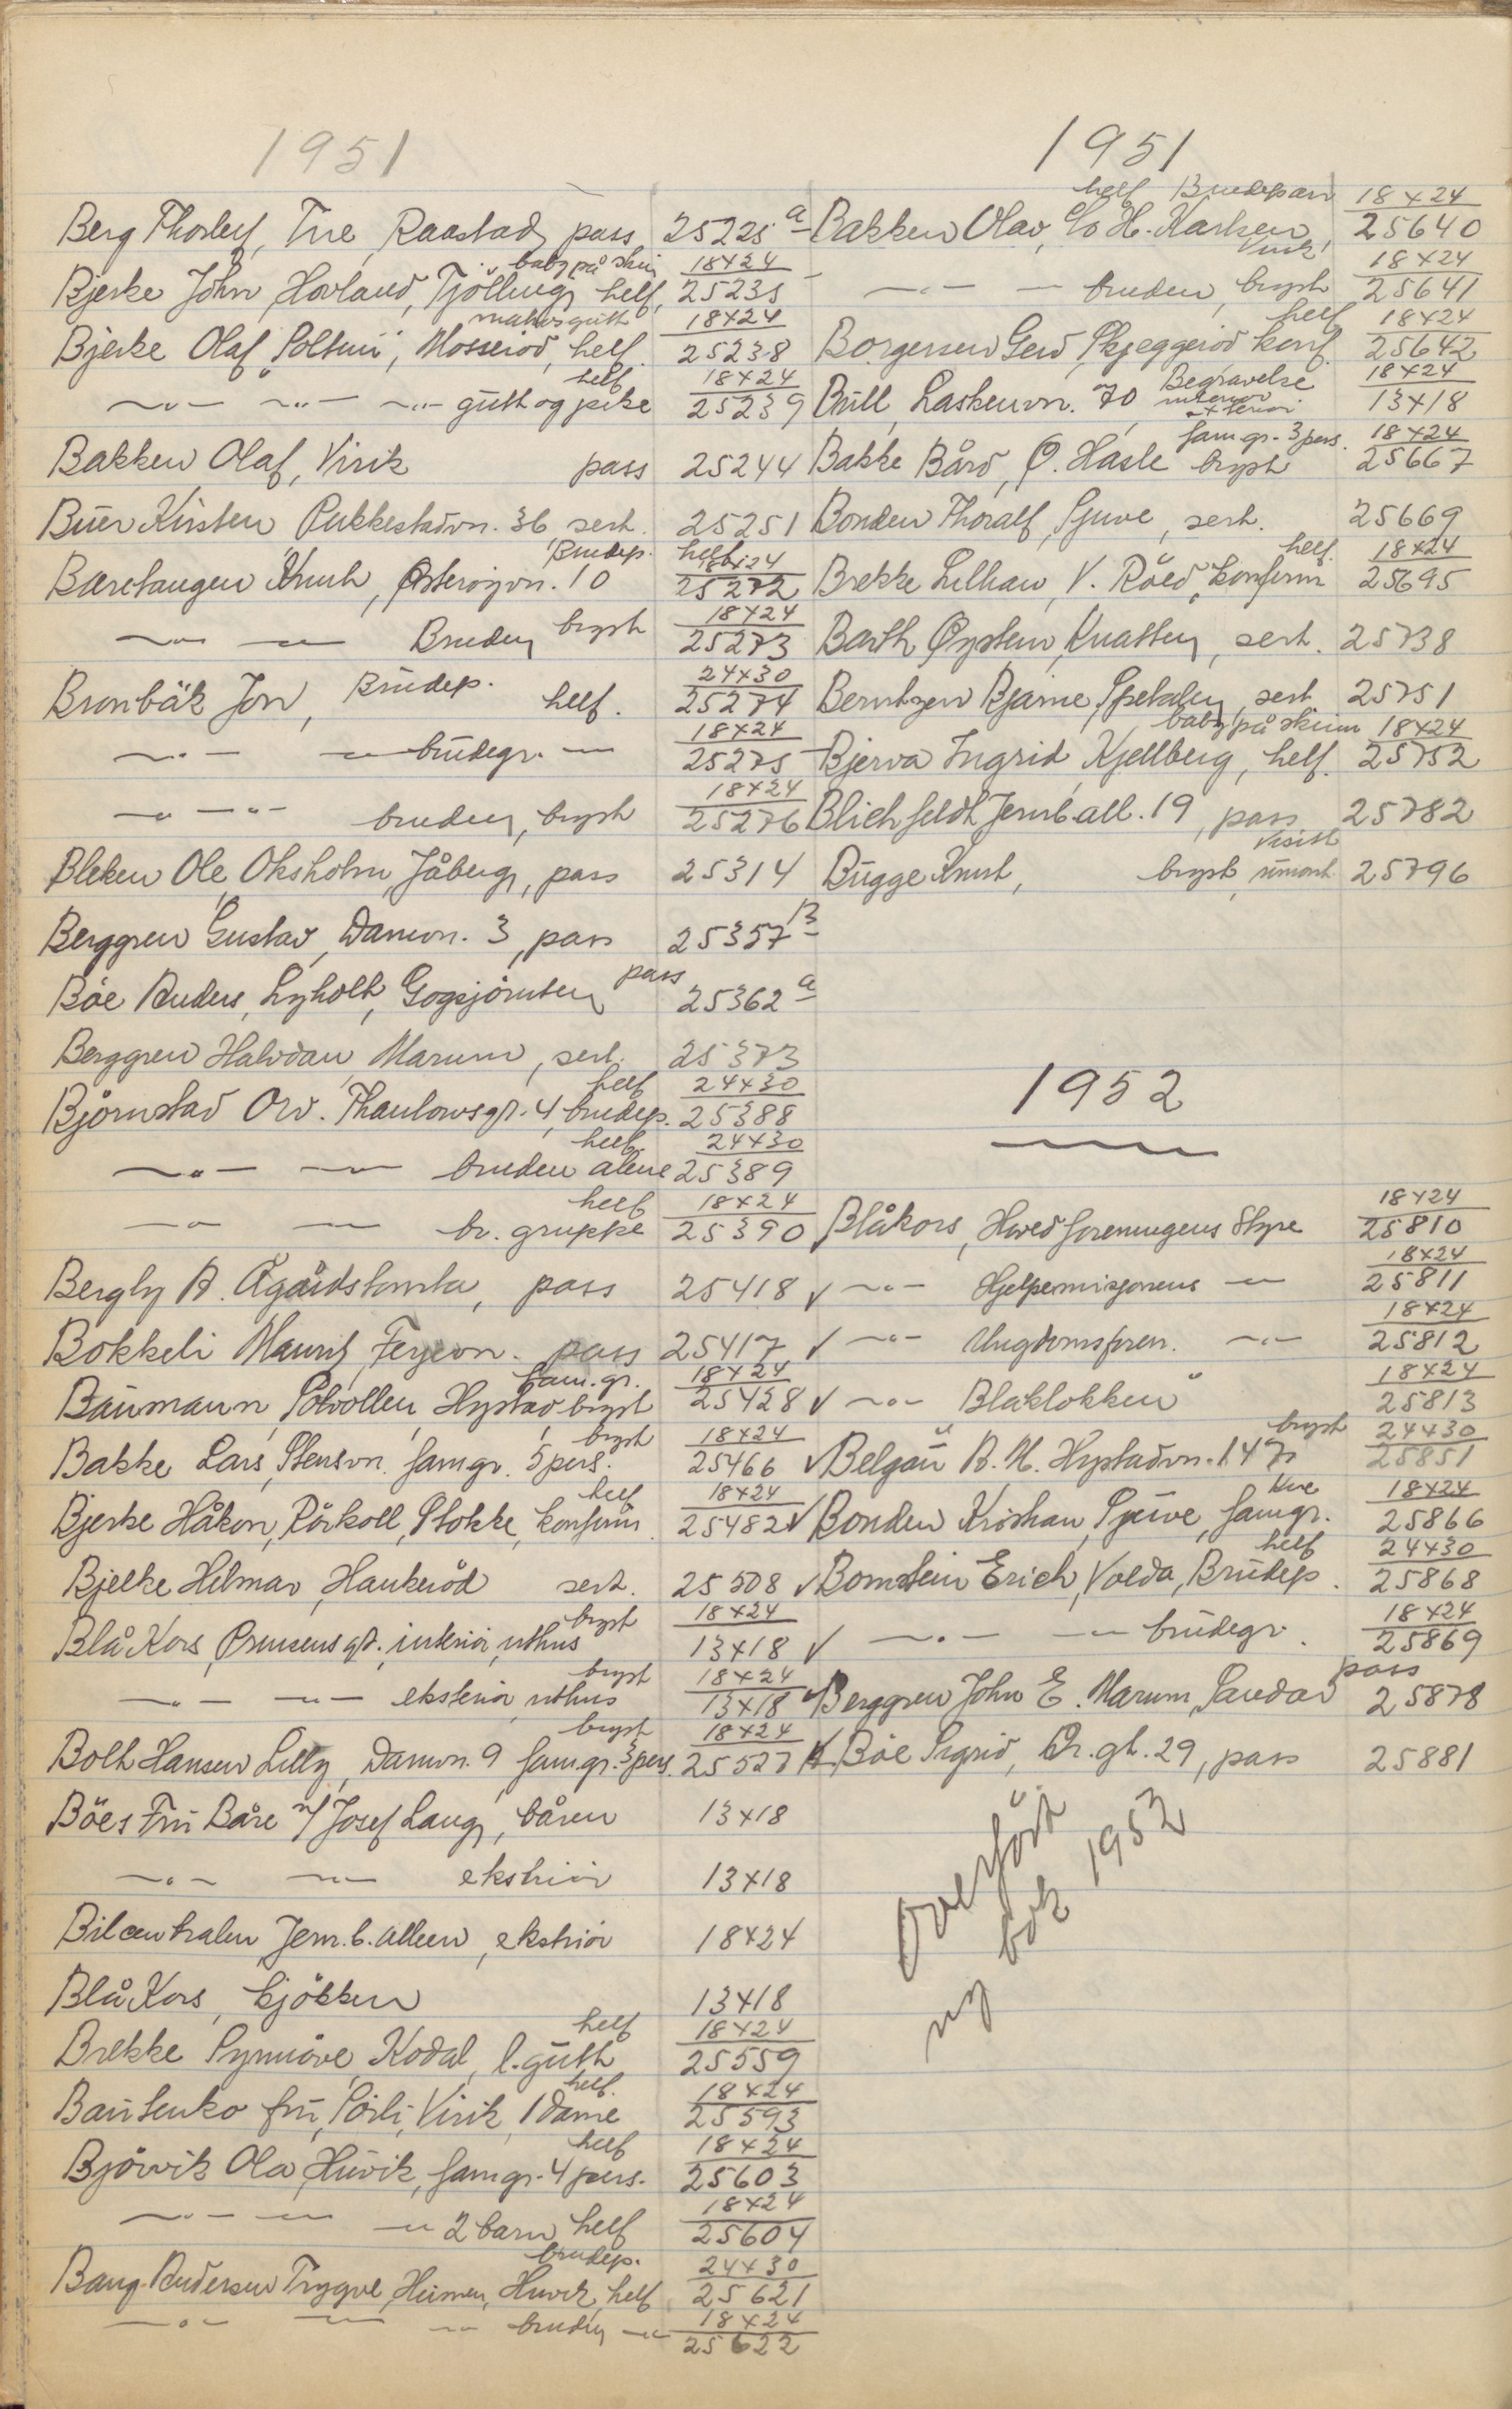 1951
Berg Thorleif, Tue, Raastad, pass 25225 a
Bjerke John, Hovland, Tjölling, baby på skin helf, 18x24 25235
Bjerke Olaf, Soltun, Mosserød, naken gutt helf. 18x24 25238
—"— —"— —"— gutt og pike helf 18x24 25239
Bakken Olaf, Virik pass 25244
Buer Kirsten Pukkestadvn. 36, sert. 25251
Baretangen Knut, Østerøyvn. 10 Brudep. helf. 18x24 25272
—"— —"— Bruden, bryst 18x24 25273
Bronbäk Jon, Brudep. helf. 24x30 25274
—"— —"— brudegr. —"— 18x24 25275
—"— —"— bruden, bryst 18x24 25276
Bleken Ole, Oksholm, Jåberg, pass 25314
Berggren Gustav, Damvn. 3, pass 25357 B
Bøe Anders, Lyholt, Gogsjø pass 25362 a
Berggren Halvdan, Marum, sert. 25373
Björnstad Arv. Thaulowsgt. 4, brudep. helf 24x30 25388
—"— —"— bruden alene helf. 24x30 25389
—"— —"— br. gruppe helf 18x24 25390
Bergly A. Ågårdstomta, pass 25418
Bokkeli Maurits, Ferjevn. pass 25417
Baumann, Solvollen, Hystad bryst fam.gr. 18x24 25428
Bakke Lars, Stensvn. famgr. 5 pers. bryst 18x24 25466
Bjerke Håkon, Rörkoll, Stokke, konfirm helf 18x24 25482
Bjelke Hilmar, Haukerød sert. 25508
Blå Kors, Prinsensgt., interiör, uthus bryst 18x24 13x18
—"— —"— eksteriör uthus bryst 18x24 13x18
Bolt Hansen Lilly, Damvn. 9 famgr. 3 pers. bryst 18x24 25527
Böes Fru Båre v/ Josef Lang, båren 13x18
—"— —"— eksteriör 13x18
Bilcentralen Jern.b.alleen, eksteriör 18x24
Blå Kors, kjökken 13x18
Brekke Synnöve, Kodal, l. gutt helf 18x24 25559
Bautenko fru, Sörli, Virik, 1 dame helf. 18x24 25593
Björvik Ola, Huvik, famgr. 4 pers. helf 18x24 25603
—"— —"— —"— 2 barn, helf 18x24 25604
Bang-Andersen Trygve, Heimen, Huvik, helf brudep. 24x30 25621
—"— —"— —"— bruden —"— 18x24 25622
1951
Bakken Olav, c/o H. Karlsen, Virik, helf Brudepar 18x24 25640
—"— — bruden, bryst 18x24 25641
Borgersen Gerd, Skjeggerød konf. helf 18x24 25642
Bull, Laskenvn. 70 Begravelse interiör og exteriör 18x24 13x18
Bakke Bård, Ø. Hasle bryst famgr. 3 pers. 18x24 25667
Bonden Thoralf, Gjuve, sert. 25669
Brekke Lillian, V. Röed, konfirm helf. 18x24 25695
Barth Øystein, Knatten, sert. 25738
Berntzen Bjarne, Spetalen, sert. 25751
Bjerva Ingrid, Kjellberg, helf. baby på skinn 18x24 25752
Blichfeldt Jernb.all. 19, pass 25782
Bugge Knut, bryst, visitt 25796
1952
Blåkors, Hovedforeningens Styre 18x24 25810
✓ —"— Hjelpemisjonens —"— 18x24 25811
✓ —"— Ungdomsforen. —"— 18x24 25812
✓ —"— Blåklokken 18x24 25813
✓ Belgau B. M. Hystadvn. 147 bryst 24x30 25851
✓ Bonden Kristian, Gjuve, famgr. 18x24 25866
✓ Bornstein Erich, Volda, Brudep. helf 24x30 25868
✓ —"— —"— brudegr. 18x24 25869
✓ Berggren John E. Marum, Sandar pass 25878
Bøe Sigrid, Dr. gt. 29, pass 25881
Overfört
ny bok 1952